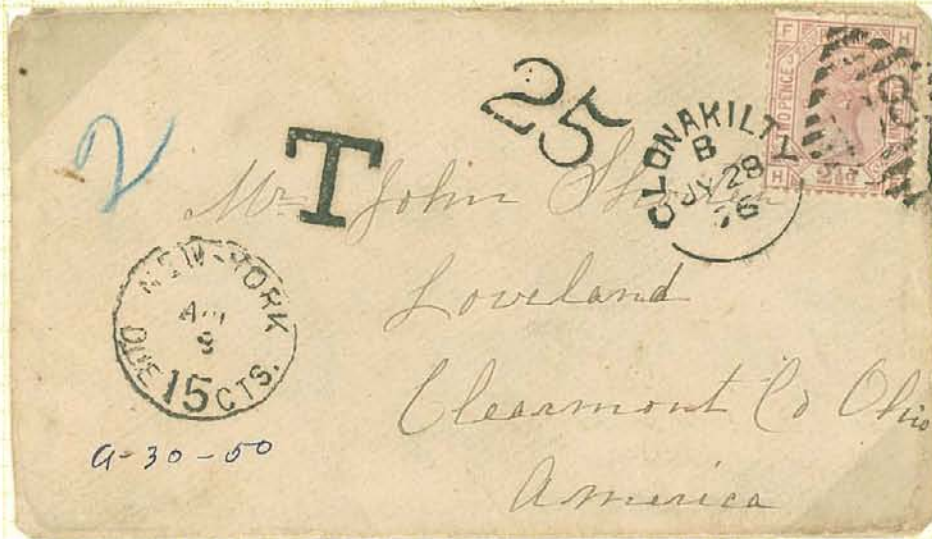 2
T
25
CLONAKILTY
B
JY 28
76
F H
TWO PENCE
H
2½d
Mr John
Loveland
Clearmont Co Ohio
America
NEW-YORK
AUG
8
DUE 15 CTS.
a-30-50